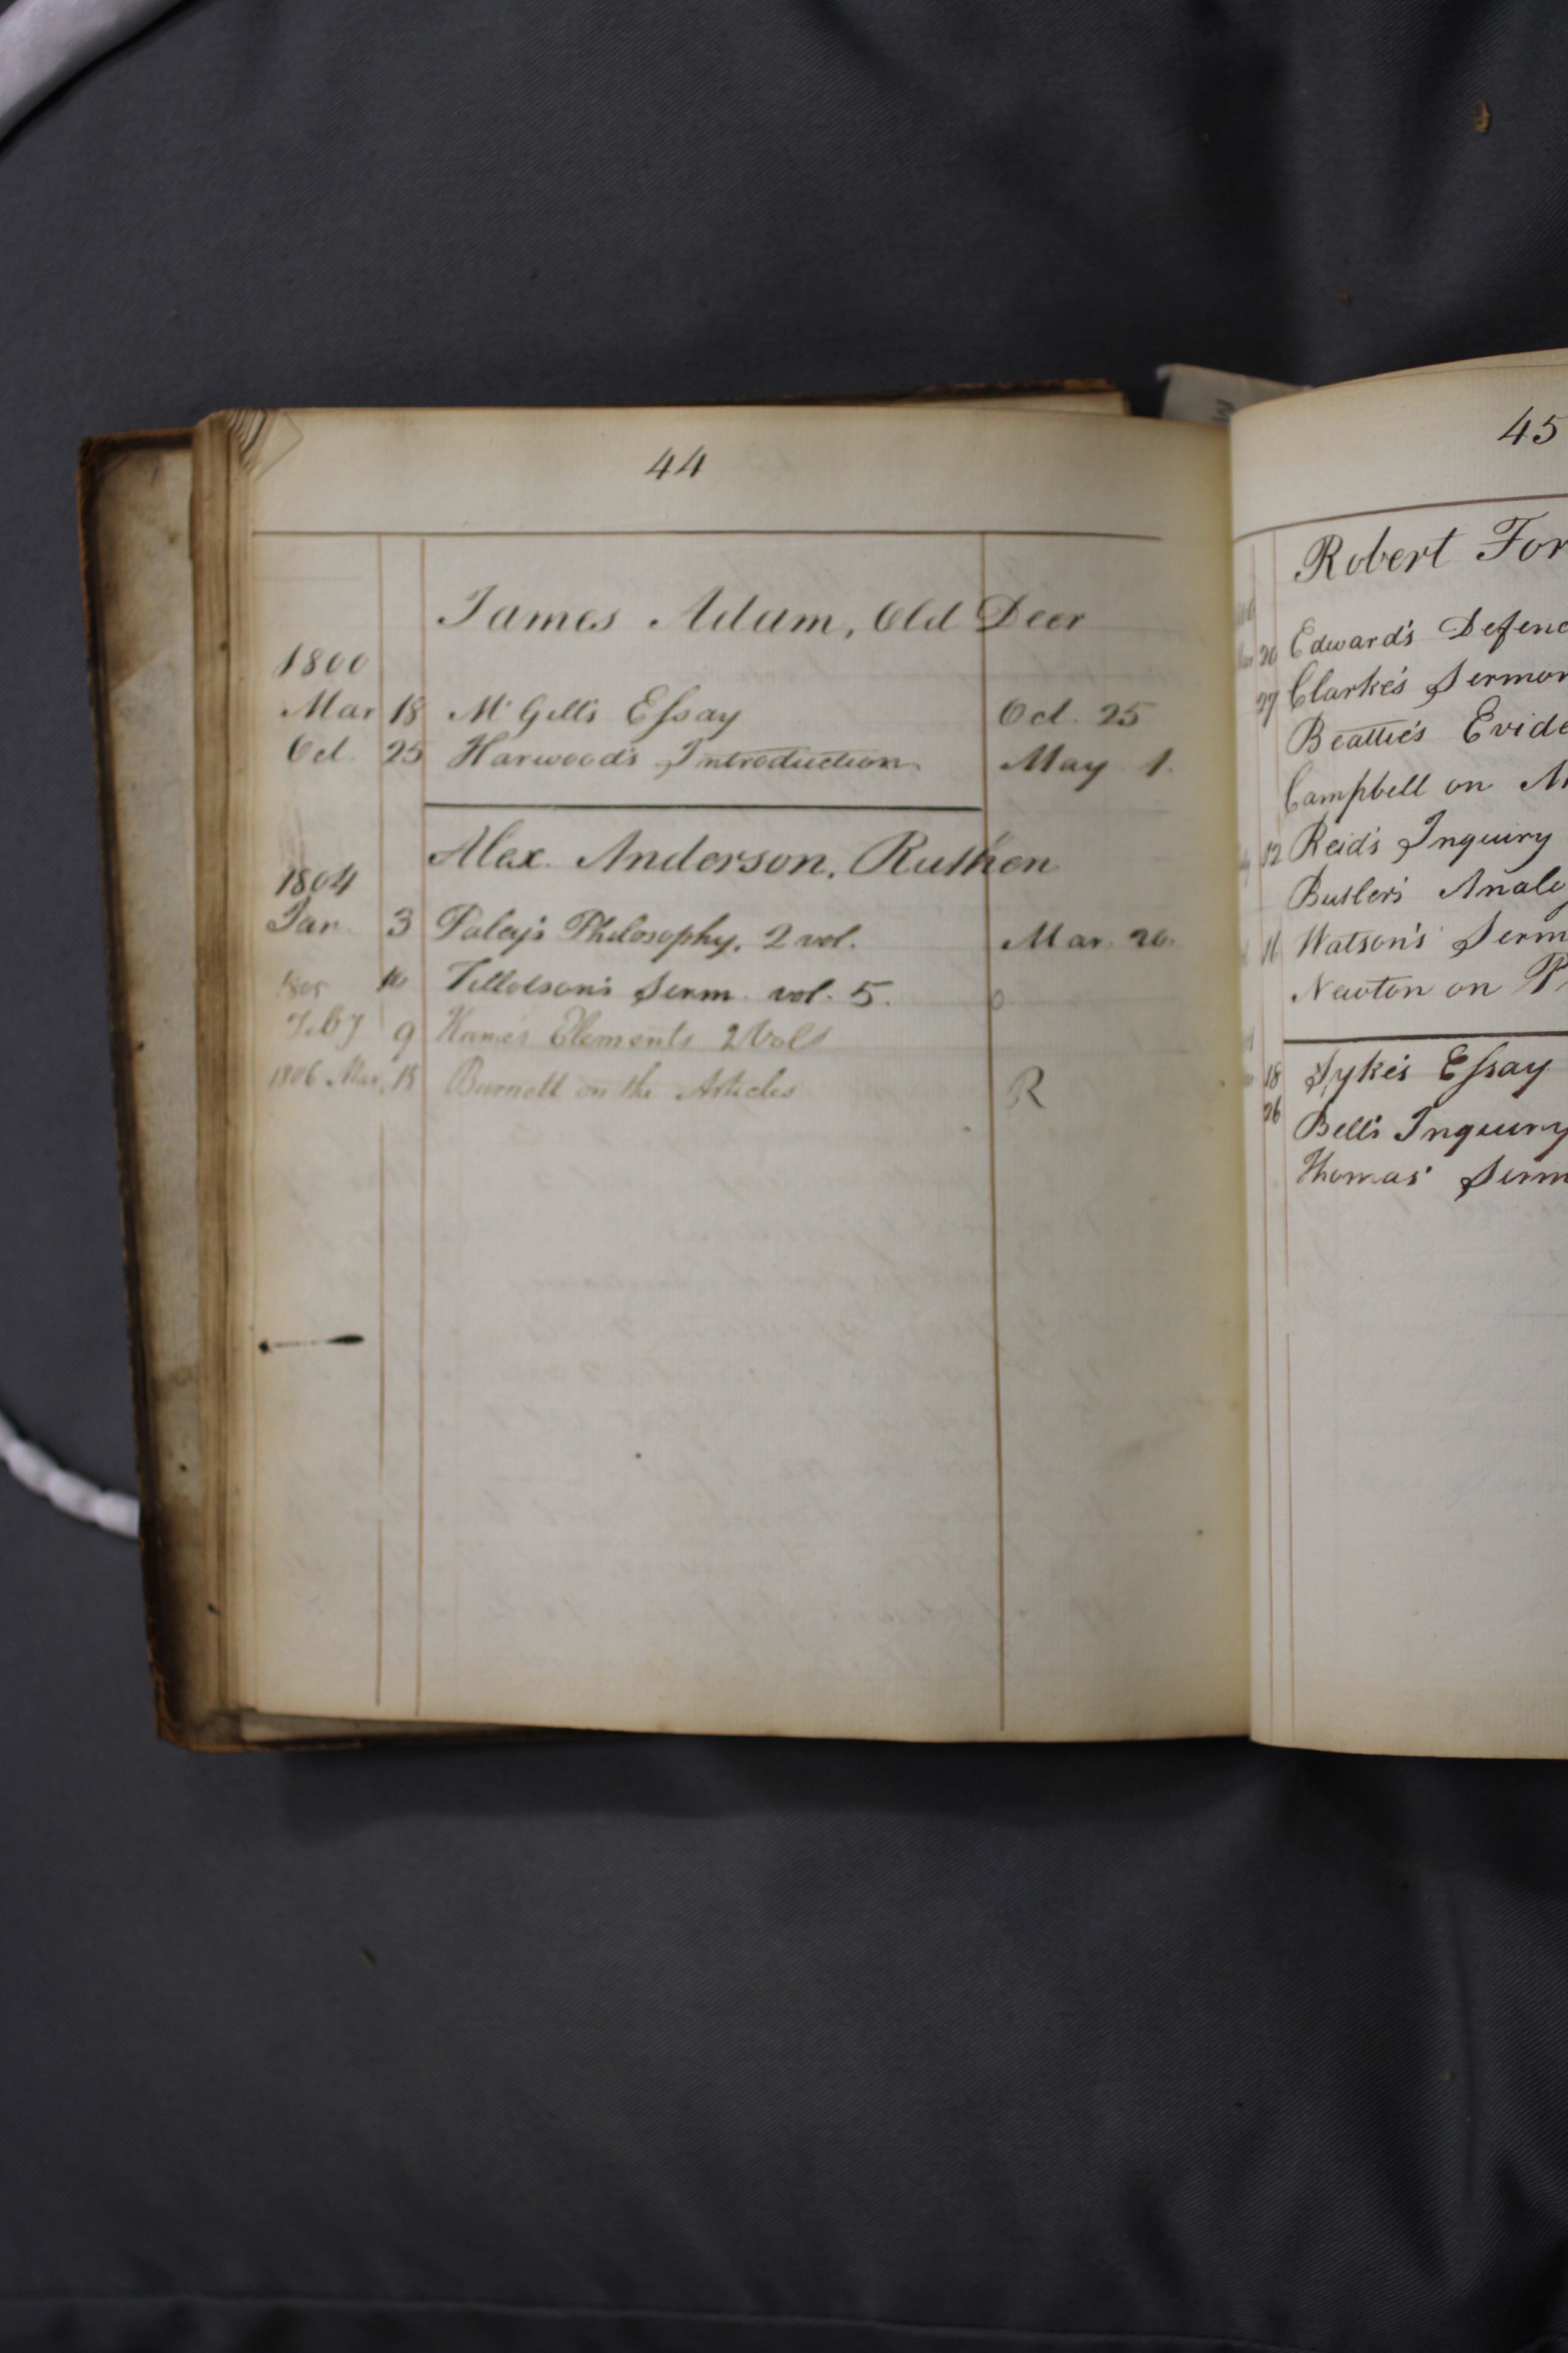 44
James Adam, Old Deer
1800
Mar 18 McGill's Essay Oct. 25
Oct. 25 Harwood's Introduction May 1.
Alex. Anderson, Ruthen
1804
Jan. 3 Paley's Philosophy. 2 vol. Mar. 20.
1805 10 Tillotson's Serm. vol. 5. 0
Feby 9 Kames Elements 2 Vols
1806 Mar. 18 Burnett on the Articles R
45
Robert For
20 Edward's Defenc
27 Clarke's Sermon
Beattie's Evide
Campbell on M
12 Reid's Inquiry
Butler's Analy
16 Watson's Serm
Newton on
18 Syke's Essay
26 Bell's Inquiry
Thomas' Serm